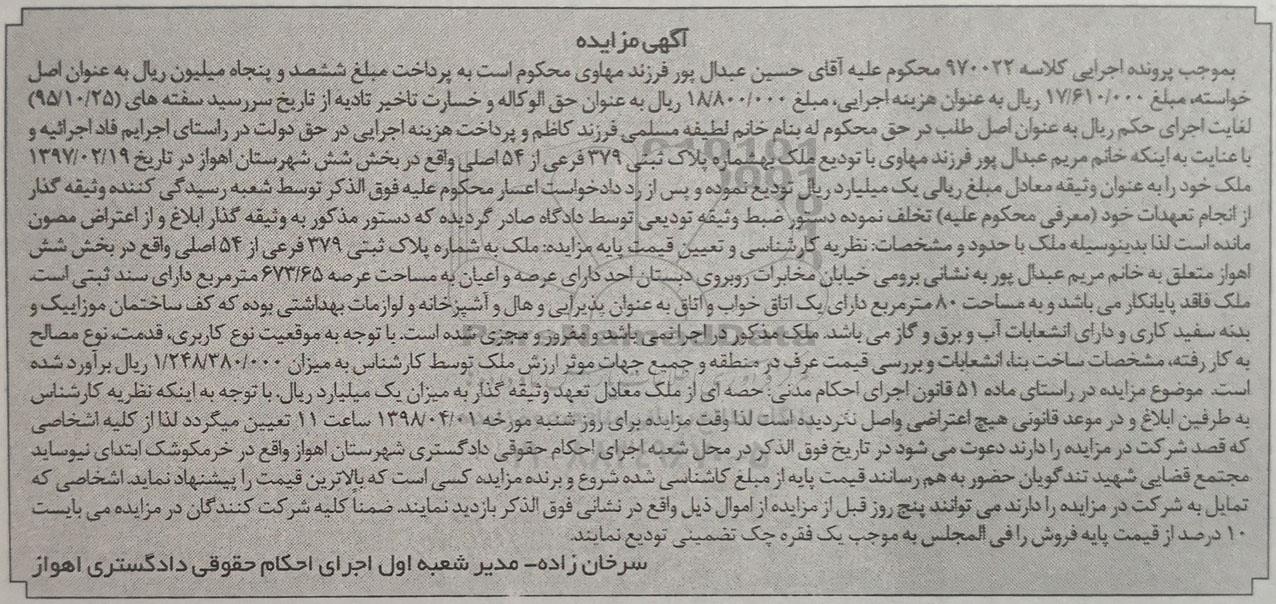 آگهی مزایده
بموجب پرونده اجرایی کلاسه ۹۷۰۰۲۲ محکوم علیه آقای حسین عبدال پور فرزند مهاوی محکوم است به پرداخت مبلغ ششصد و پنجاه میلیون ریال به عنوان اصل
خواسته، مبلغ ۱۷/۶۱۰/۰۰۰ ریال به عنوان هزینه اجرایی، مبلغ ۱۸/۸۰۰/۰۰۰ ریال به عنوان حق الوکاله و خسارت تاخیر تادیه از تاریخ سررسید سفته های (۹۵/۱۰/۲۵)
لغایت اجرای حکم ریال به عنوان اصل طلب در حق محکوم له بنام خانم لطیفه مسلمی فرزند کاظم و پرداخت هزینه اجرایی در حق دولت در راستای اجرایم قاد اجرائیه و
با عنایت به اینکه خانم مریم عبدال پور فرزند مهاوی با تودیع ملک بهشماره پلاک ثبتی ۳۷۹ فرعی از ۵۴ اصلی واقع در بخش شش شهرستان اهواز در تاریخ ۱۳۹۷/۰۲/۱۹
ملک خود را به عنوان وثیقه معادل مبلغ ریالی یک میلیارد ریال تودیع نموده و پس از رد دادخواست اعسار محکوم علیه فوق الذکر توسط شعبه رسیدگی کننده وثیقه گذار
از انجام تعهدات خود (معرفی محکوم علیه) تخلف نموده دستور ضبط وثیقه تودیعی توسط دادگاه صادر گردیده که دستور مذکور به وثیقه گذار ابلاغ و از اعتراض مصون
مانده است لذا بدینوسیله ملک با حدود و مشخصات: نظریه کارشناسی و تعیین قیمت پایه مزایده: ملک به شماره پلاک ثبتی ۳۷۹ فرعی از ۵۴ اصلی واقع در بخش شش
اهواز متعلق به خانم مریم عبدال پور به نشانی برومی خیابان مخابرات روبروی دبستان احد دارای عرصه و اعیان به مساحت عرصه ۶۷۳/۶۵ مترمربع دارای سند ثبتی است.
ملک فاقد پایانکار می باشد و به مساحت ۸۰ مترمربع دارای یک اتاق خواب و اتاق به عنوان پذیرایی و هال و آشپزخانه و لوازمات بهداشتی بوده که کف ساختمان موزاییک و
بدنه سفید کاری و دارای انشعابات آب و برق و گاز می باشد. ملک مذکور در اجرا نمی باشد و مفروز و مجزی شده است. با توجه به موقعیت نوع کاربری، قدمت، نوع مصالح
به کار رفته، مشخصات ساخت بنا، انشعابات و بررسی قیمت عرف در منطقه و جمیع جهات موثر ارزش ملک توسط کارشناس به میزان ۱/۲۴۸/۳۸۰/۰۰۰ ریال برآورد شده
است. موضوع مزایده در راستای ماده ۵۱ قانون اجرای احکام مدنی: حصه ای از ملک معادل تعهد وثیقه گذار به میزان یک میلیارد ریال. با توجه به اینکه نظریه کارشناس
به طرفین ابلاغ و در موعد قانونی هیچ اعتراضی واصل نگردیده است لذا وقت مزایده برای روز شنبه مورخه ۱۳۹۸/۰۴/۰۱ ساعت ۱۱ تعیین میگردد لذا از کلیه اشخاصی
که قصد شرکت در مزایده را دارند دعوت می شود در تاریخ فوق الذکر در محل شعبه اجرای احکام حقوقی دادگستری شهرستان اهواز واقع در خرمکوشک ابتدای نیوساید
مجتمع قضایی شهید تندگویان حضور به هم رسانند قیمت پایه از مبلغ کاشناسی شده شروع و برنده مزایده کسی است که بالاترین قیمت را پیشنهاد نماید. اشخاصی که
تمایل به شرکت در مزایده را دارند می توانند پنج روز قبل از مزایده از اموال ذیل واقع در نشانی فوق الذکر بازدید نمایند. ضمنا کلیه شرکت کنندگان در مزایده می بایست
۱۰ درصد از قیمت پایه فروش را فی المجلس به موجب یک فقره چک تضمینی تودیع نمایند.
سرخان زاده- مدیر شعبه اول اجرای احکام حقوقی دادگستری اهواز